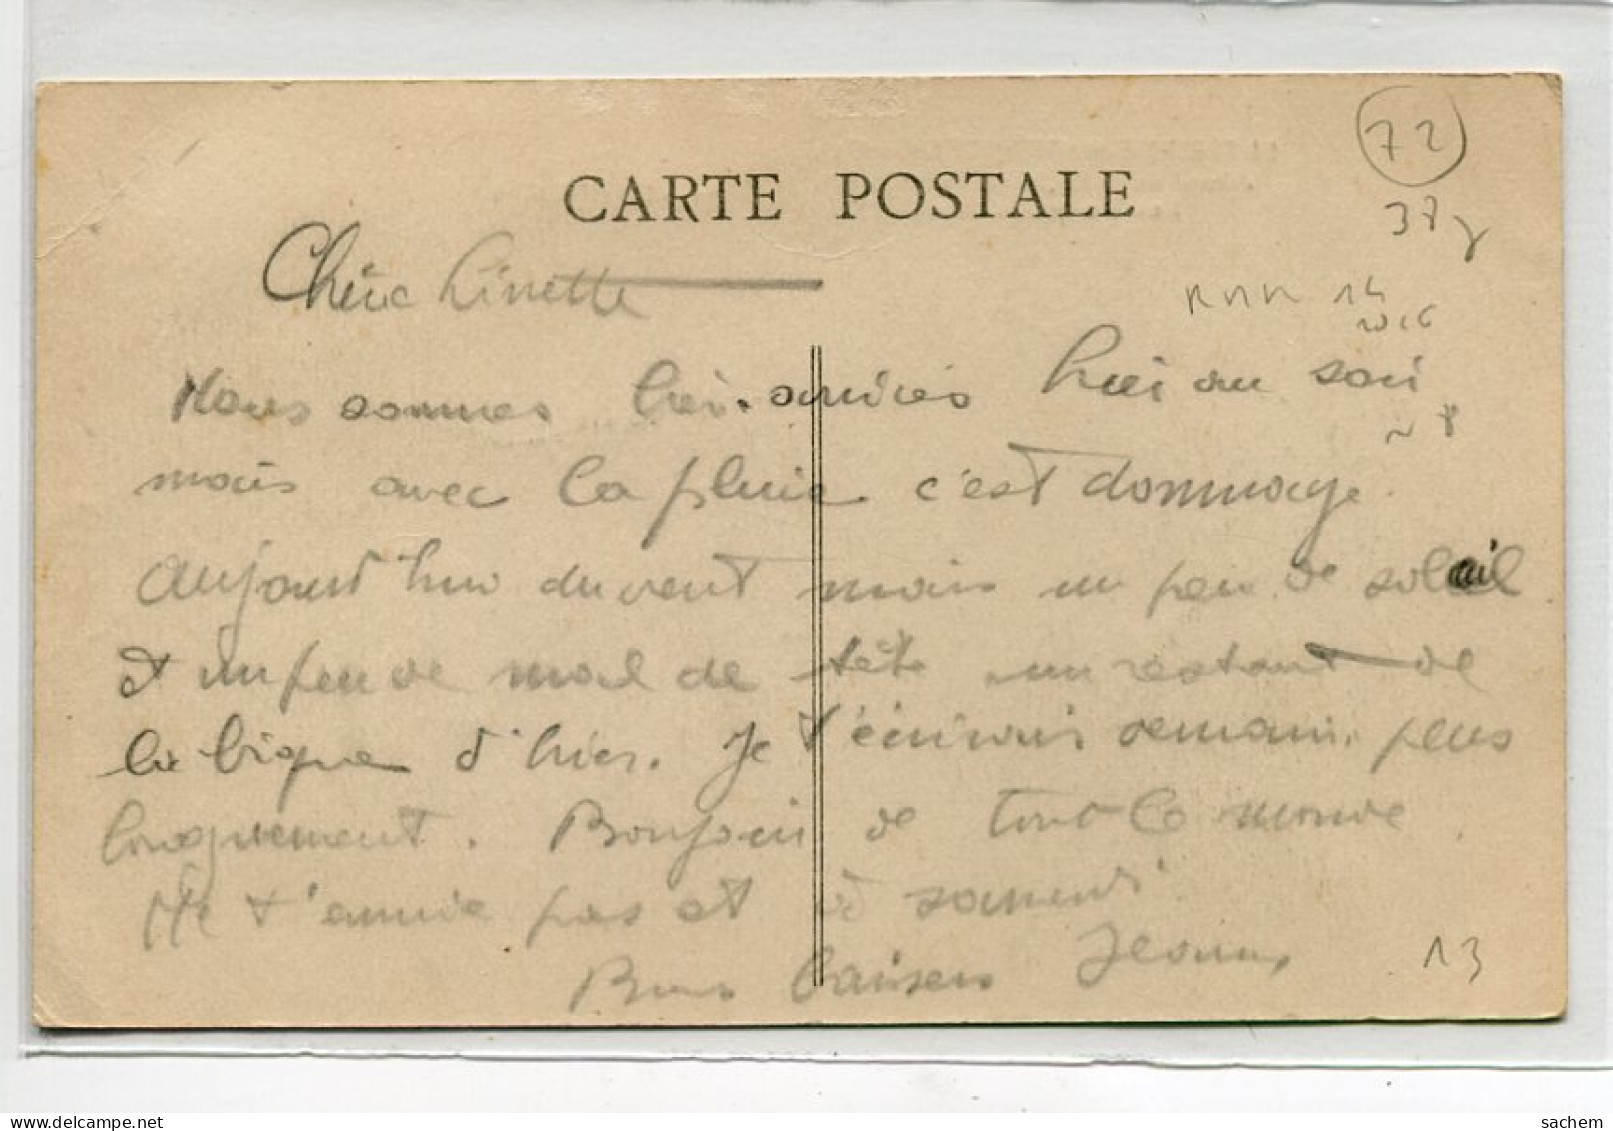 72
CARTE POSTALE
37
Chère Linette
14
Nous sommes bien arrivés hier au soir
mais avec la pluie c'est dommage.
Aujourd'hui du vent mais un peu de soleil
et un peu de mal de tête un restant de
la bique d'hier. Je t'écrirais demain plus
longuement. Bonjour de tout le monde.
Ne t'ennuie pas et à samedi.
Bons baisers Jeanne
13
sachem